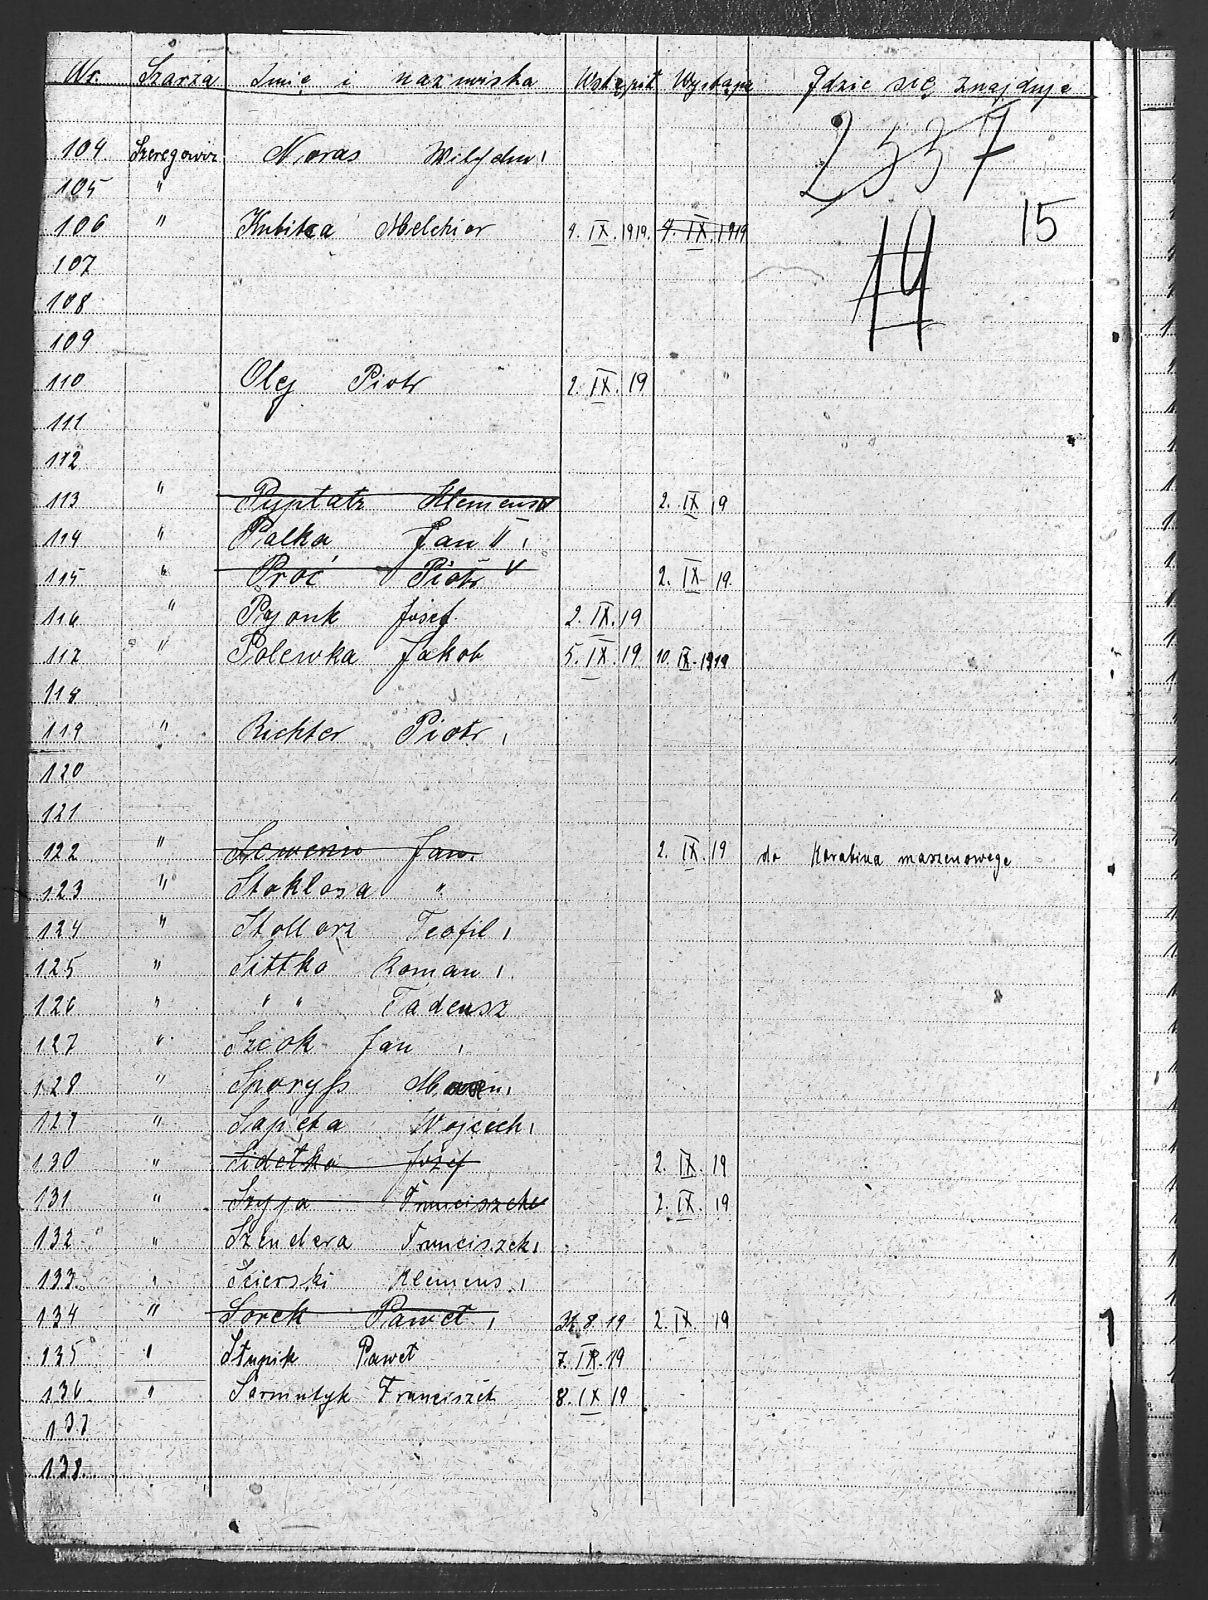 Nr. Szarża Imię i nazwiska Wstąpił Wystąpił Gdzie się znajduje
2537
104 Szeregowiec Noras Wilhelm
105 "
15
106 " Kubitza Melchior 9. IX. 1919. 9. IX. 1919
14
107
108
109
110 Olej Piotr 2. IX. 19
111
112
113 " Klemens 2. IX 19
114 " Palka Jan II
115 " Proć Piotr 2. IX 19.
116 " Pyonk Josef 2. IX. 19
117 " Polewka Jakob 5. IX. 19 10. IX. 1919
118
119 " Richter Piotr
120
121
122 " Jan 2. IX 19 do Karabina maszenowego
123 " Stoklosa "
124 " Stollarz Teofil
125 " Sittko Roman
126 " " " Tadeusz
127 " Szcok Jan
128 " Sporyß
129 " Sapeta Wojciech
130 " Sidełko Jozef 2. IX. 19
131 " Szyja Franciszek 2. IX. 19
132 " Szendera Franciszek
133 " Scierski Klemens
134 " Sorek Paweł 31. 8. 19 2. IX. 19
135 " Słupik Paweł 7. IX. 19
136 " Sarmutyk Franciszek 8. IX 19
137
138.